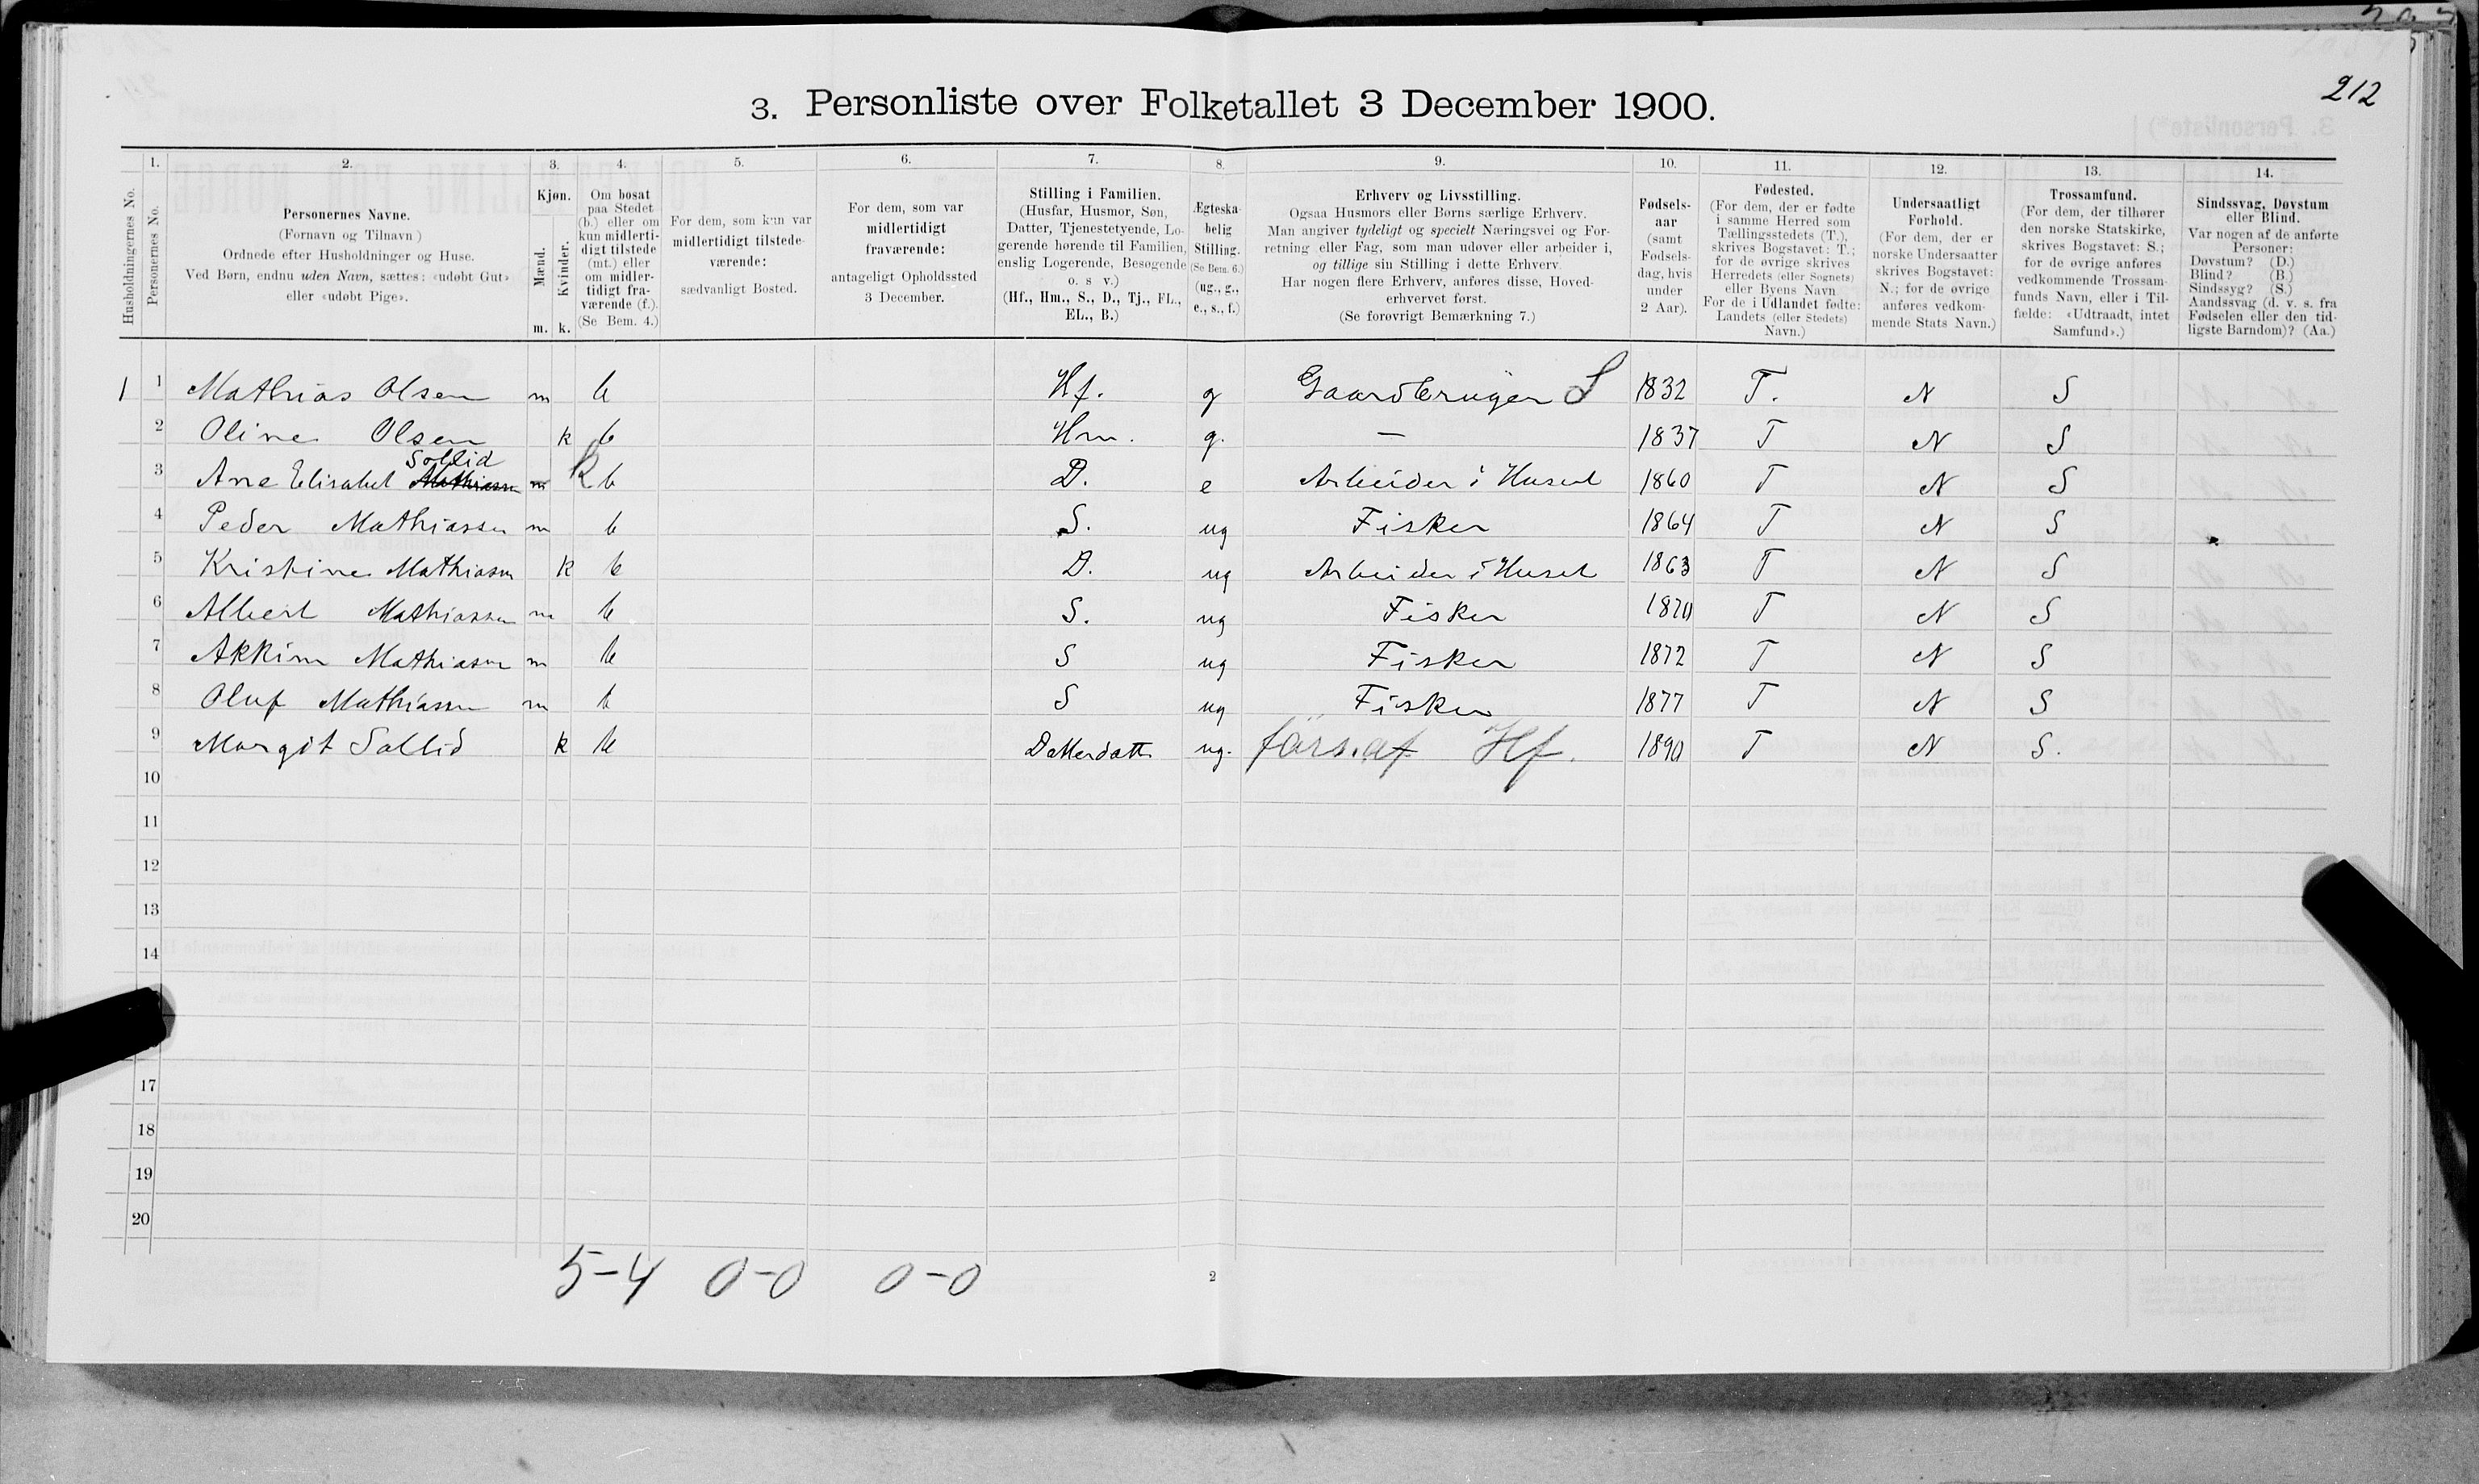 212
3. Personliste over Folketallet 3 December 1900.
1. 2. 3. 4. 5. 6. 7. 8. 9. 10. 11. 12. 13. 14.
Husholdningernes No.
Personernes No.
Personernes Navne.
(Fornavn og Tilnavn)
Ordnede efter Husholdninger og Huse.
Ved Børn, endnu uden Navn, sættes: «udøbt Gut»
eller «udøbt Pige».
Kjøn.
Mænd.
Kvinder.
m. k.
Om bosat
paa Stedet
(b.) eller om
kun midlerti-
digt tilstede
(mt.) eller
om midler-
tidigt fra-
værende (f.).
(Se Bem. 4.)
For dem, som kun var
midlertidigt tilstede-
værende:
sædvanligt Bosted.
For dem, som var
midlertidigt
fraværende:
antageligt Opholdssted
3 December.
Stilling i Familien.
(Husfar, Husmor, Søn,
Datter, Tjenestetyende, Lo-
gerende hørende til Familien,
enslig Logerende, Besøgende
o. s v.)
(Hf., Hm., S., D., Tj., FL.,
EL., B.)
Ægteska-
belig
Stilling.
(Se Bem. 6.)
(ug., g.,
e., s., f.)
Erhverv og Livsstilling.
Ogsaa Husmors eller Børns særlige Erhverv.
Man angiver tydeligt og specielt Næringsvei og For-
retning eller Fag, som man udøver eller arbeider i,
og tillige sin Stilling i dette Erhverv.
Har nogen flere Erhverv, anføres disse, Hoved-
erhvervet først.
(Se forøvrigt Bemærkning 7.)
Fødsels-
aar
(samt
Fødsels-
dag, hvis
under
2 Aar).
Fødested.
(For dem, der er fødte
i samme Herred som
Tællingsstedets (T.),
skrives Bogstavet: T.;
for de øvrige skrives
Herredets (eller Sognets)
eller Byens Navn
For de i Udlandet fødte:
Landets (eller Stedets)
Navn.)
Undersaatligt
Forhold.
(For dem, der er
norske Undersaatter
skrives Bogstavet:
N.; for de øvrige
anføres vedkom-
mende Stats Navn.)
Trossamfund.
(For dem, der tilhører
den norske Statskirke,
skrives Bogstavet: S.;
for de øvrige anføres
vedkommende Trossam-
funds Navn, eller i Til-
fælde: «Udtraadt, intet
Samfund».)
Sindssvag, Døvstum
eller Blind.
Var nogen af de anførte
Personer:
Døvstum? (D.)
Blind? (B.)
Sindssyg? (S.)
Aandssvag (d. v. s. fra
Fødselen eller den tid-
ligste Barndom)? (Aa.)
1 1 Mathias Olsen m b Hf. g Gaardbruger S 1832 T. N S
2 Oline Olsen k b Hm. g. — 1837 T N S
Sollid
3 Ane Elisabet Mathiassen m k b D. e Arbeider i Huset 1860 T N S
4 Peder Mathiassen m b S. ug Fisker 1864 T N S
5 Kristine Mathiasen k b D. ug Arbeider i Huset 1863 T N S
6 Albert Mathiassen m b S. ug Fisker 1870 T N S
7 Akkim Mathiasen m b S ug Fisker 1872 T N S
8 Oluf Mathiassen m b S ug Fisker 1877 T N S
9 Margit Sollid k b Datterdatter ug. førs. af Hf. 1890 T N S.
10
11
12
13
14
17
18
19
20
5-4 0-0 0-0
2